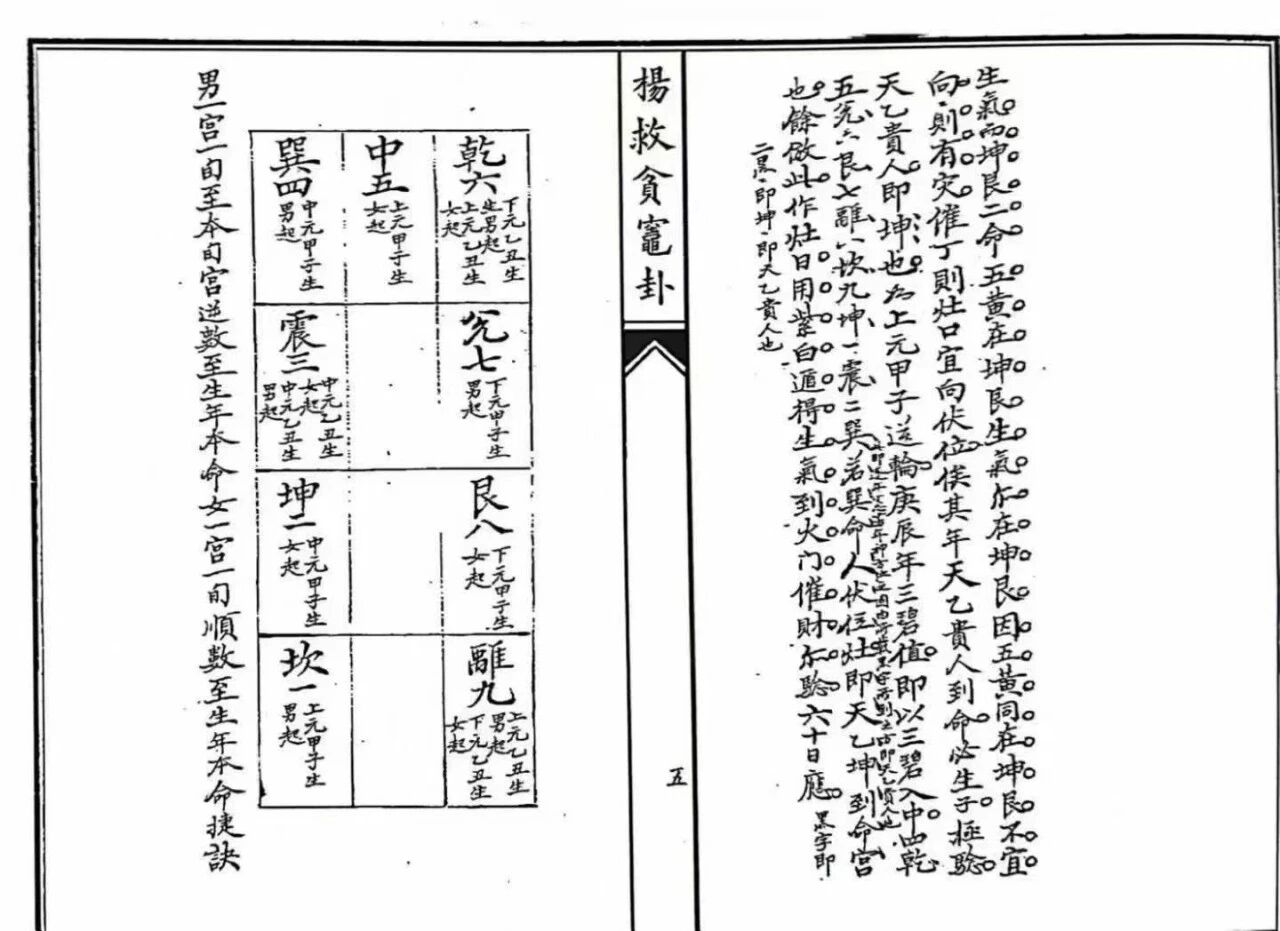 生氣而坤艮二命五黃在坤艮生氣亦在坤艮因五黃同在坤艮不宜
向則有灾催丁則灶口宜向伏位俟其年天乙貴人到命必生子極驗
天乙貴人即坤也如上元甲子逆輪庚辰年三碧值即以三碧入中四乾
五兊六艮七離八坎九坤一震二巽若巽命人伏位灶即天乙坤到命宮
也餘倣此作灶日用紫白遁得生氣到火门催財亦驗六十日應
黑字即
二黑即坤即天乙貴人也
楊救貧竈卦
五
乾六
下元乙丑生
男起
上元乙丑生
女起
中五
上元甲子生
女起
巽四
中元甲子生
男起
兊七
下元甲子生
男起
震三
中元乙丑生
女起
中元乙丑生
男起
艮八
下元甲子生
女起
坤二
中元甲子生
女起
離九
上元乙丑生
男起
下元乙丑生
女起
坎一
上元甲子生
男起
男一宮一旬至本旬宮逆數至生年本命女一宮一旬順數至生年本命捷訣